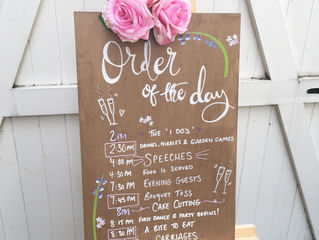 Order
of the day
2PM THE 'I DO'S'
2:30PM DRINKS, NIBBLES & GARDEN GAMES
4:00PM SPEECHES
4:30 PM FOOD IS SERVED
7:30 PM EVENING GUESTS
7:45PM BOUQUET TOSS
8PM CAKE CUTTING
8:15 PM FIRST DANCE & PARTY BEGINS!
8:30PM A BITE TO EAT
CARRIAGES